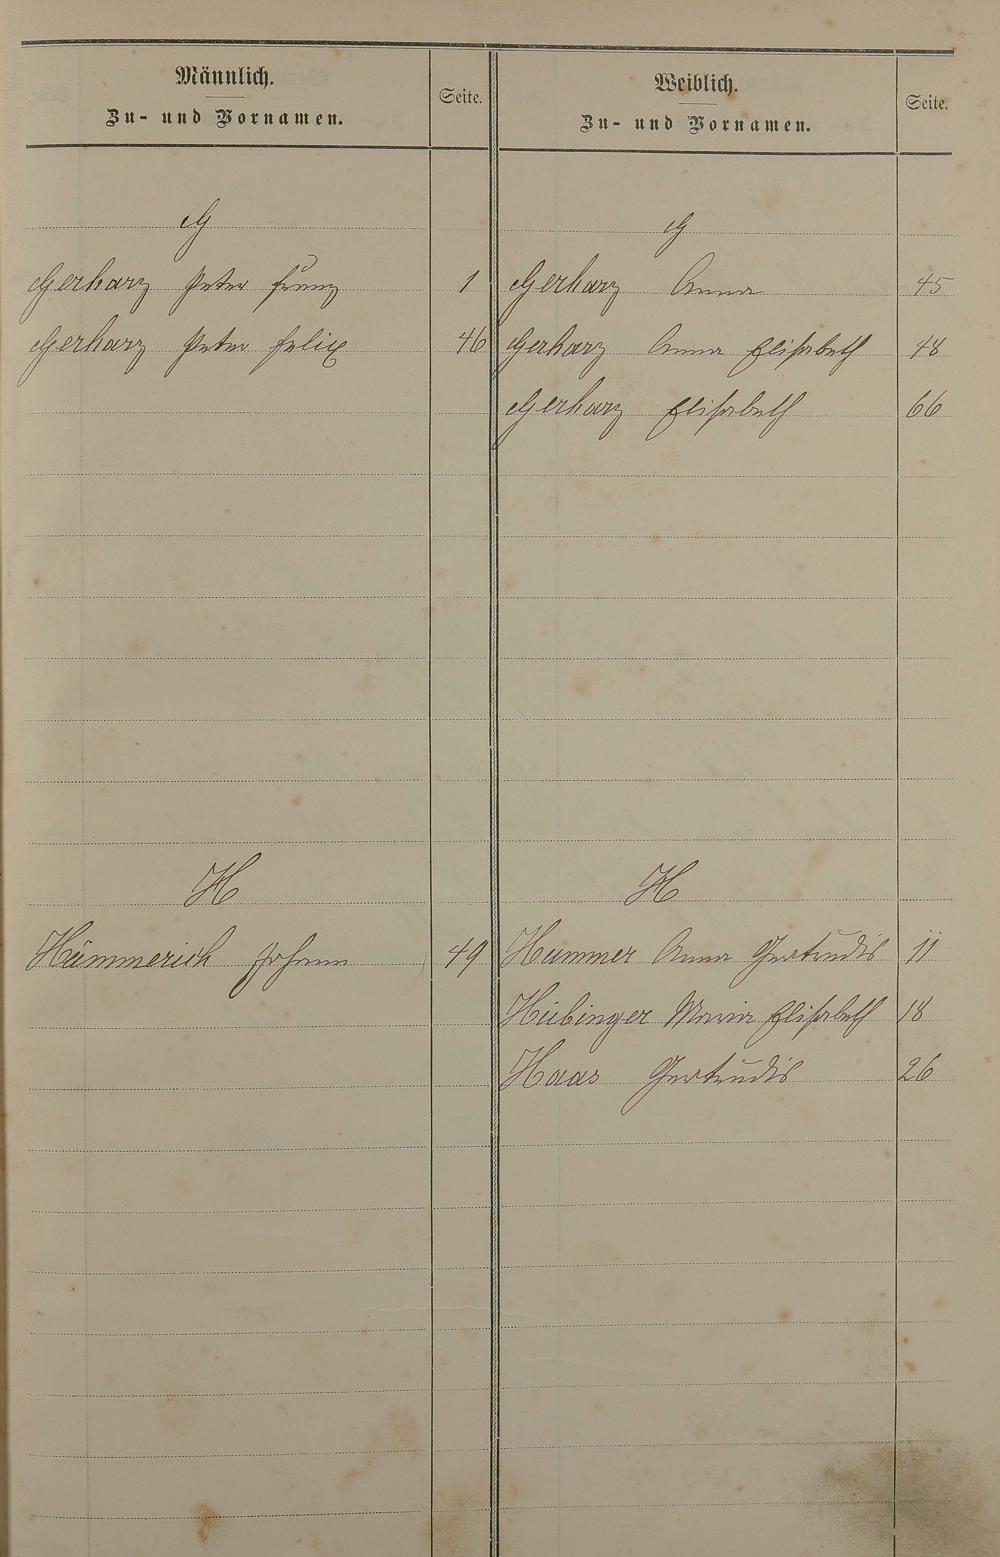 Männlich.
Zu- und Vornamen.
Seite.
G
Gerharz Peter Franz 1
Gerharz Peter Felix 46
H
Hümmerich Johann 49
Weiblich.
Zu- und Vornamen.
Seite.
G
Gerharz Anna 45
Gerharz Anna Elisabeth 48
Gerharz Elisabeth 66
H
Hummer Anna Gertrudis 11
Hübinger Maria Elisabeth 18
Haas Gertrudis 26